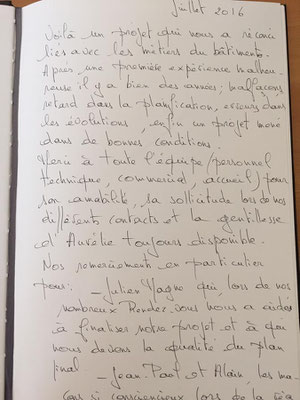 juillet 2016
Voilà un projet qui nous a réconci
liés avec les métiers du bâtiment.
Après une première expérience malheu-
reuse il y a bien des années; malfaçons
retard dans la planification, erreurs dans
les évolutions, enfin un projet mené
dans de bonnes conditions.
Merci à toute l'équipe (personnel
technique, commercial, accueil) pour
son amabilité, sa sollicitude lors de nos
différents contacts et la gentillesse
d'Aurélie toujours disponible.
Nos remerciements en particulier
pour: - Julien Magne qui lors de nos
nombreux Rendez-vous nous a aidés
à finaliser notre projet et à qui
nous devons la qualité du plan
final
- Jean-Paul et Alain, les ma-
çons si consciencieux lors de la